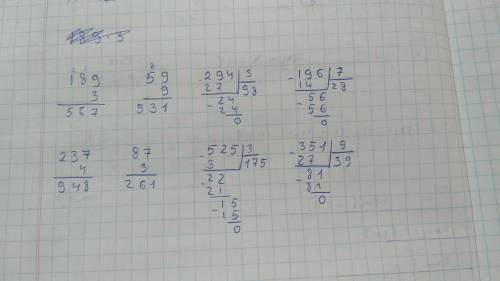 189·3
189 59 -294|3 -196|7
3 9 27 |98 14 |28
567 531 -24 -56
24 56
0 0
237 87 -525|3 -351|9
4 3 3 |175 27 |39
948 261 -22 -81
21 81
-15 0
15
0